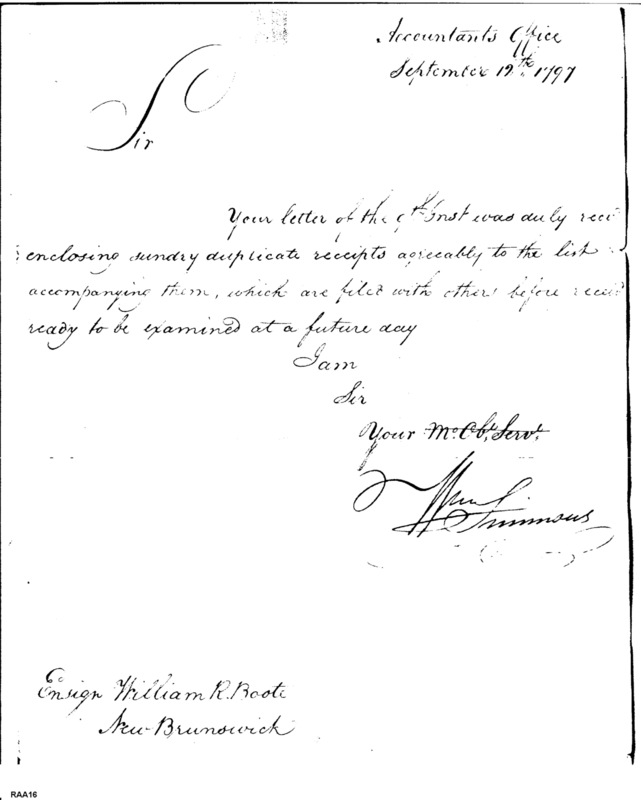 Accountants Office
September 12th 1797
Sir
Your letter of the 9th Inst was duly recei
enclosing sundry duplicate receipts agreeably to the list
accompanying them, which are filed with others before receiv
ready to be examined at a future day
I am
Sir
Your Mo. Obt. Servt.
Wm Simmons
Ensign William R. Boote
New Brunswick
RAA16